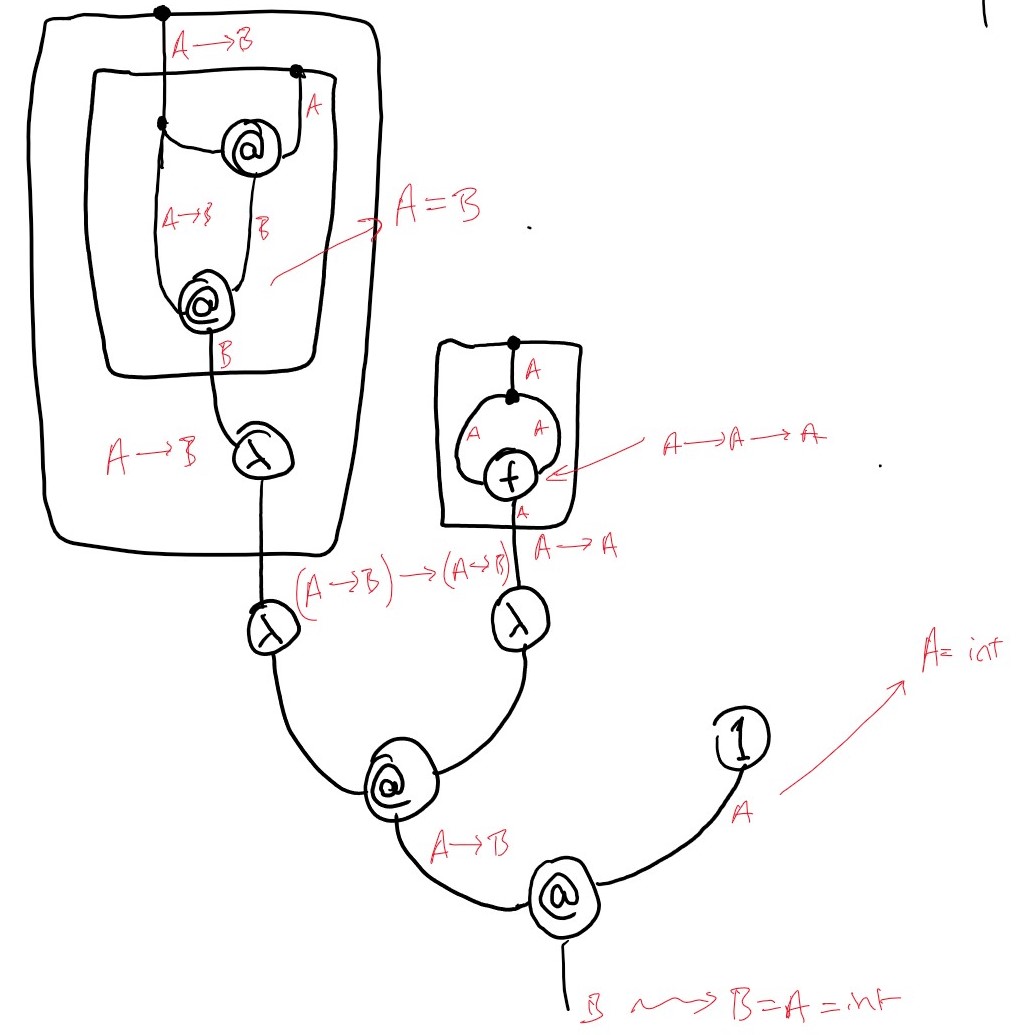 A→B
A
@
A→B
B
A=B
@
B
A
A
A
A→B
λ
f
A→A→A
A
A→A
(A→B)→(A→B)
λ
λ
A= int
1
@
A
A→B
@
B ⟿ B=A=int